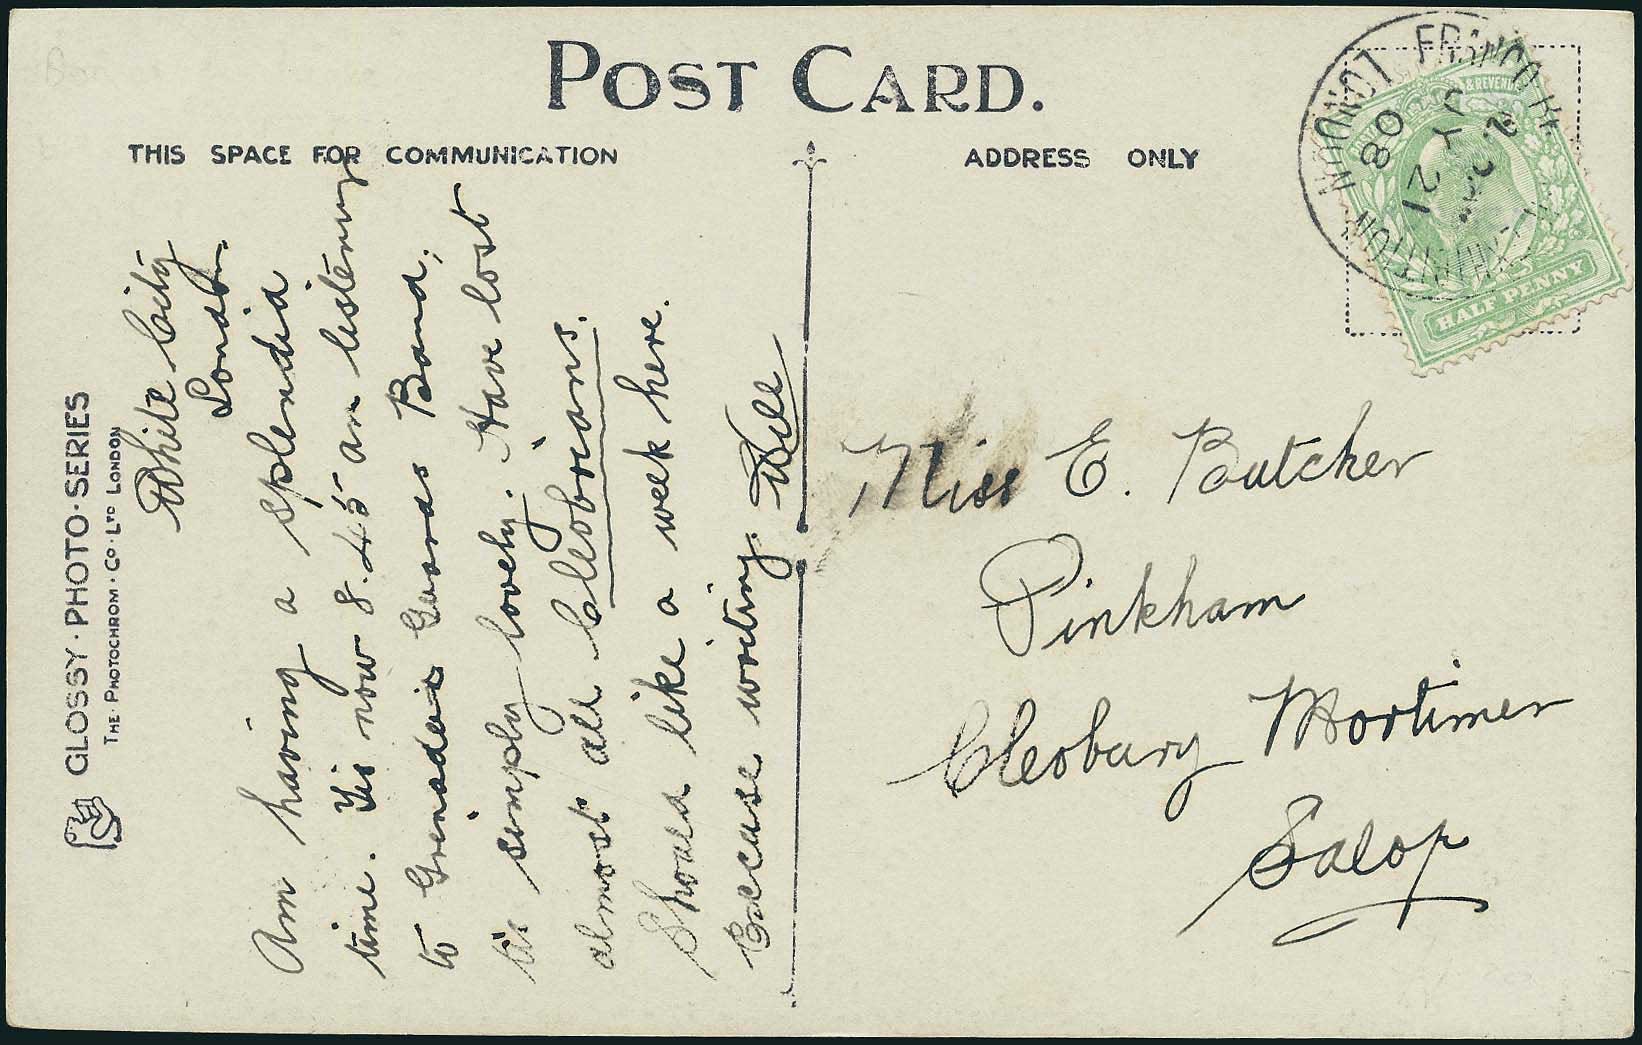 POST CARD.
THIS SPACE FOR COMMUNICATION
ADDRESS ONLY
GLOSSY · PHOTO · SERIES
THE · PHOTOCHROM · CO · LTD LONDON
White City
London.
Am having a splendid
time. Tis now 8.45 am listening
to Grenadier Guards Band,
tis simply lovely. Have lost
almost all Cleobrians.
Should like a week here.
Excuse writing.
Miss E. Butcher
Pinkham
Cleobury Mortimer
Salop
LONDON FRANCO
EXHIBITION
JY 21
08
& REVENUE
HALF PENNY